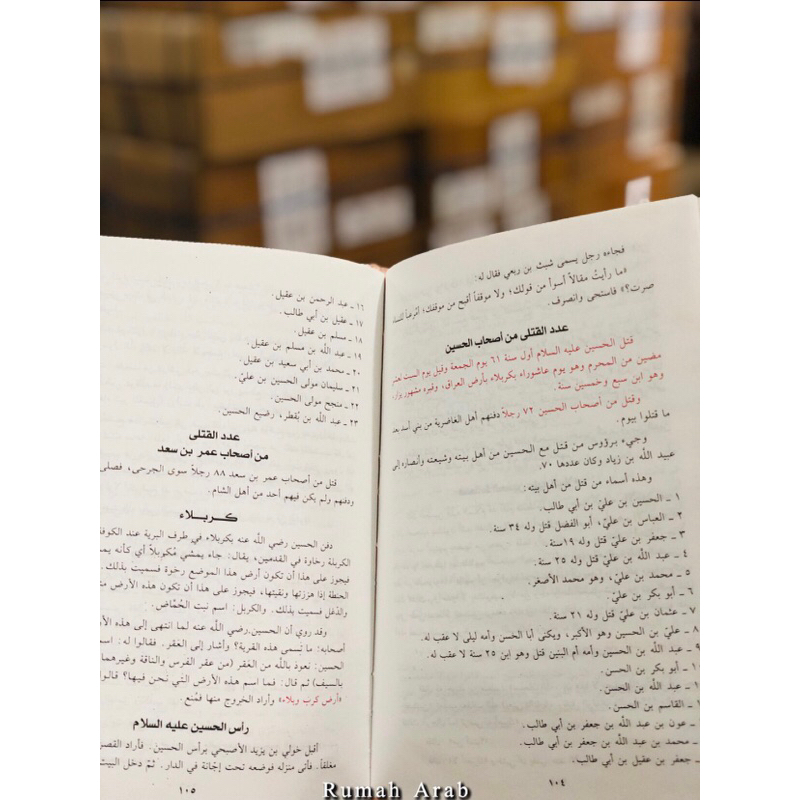 فجاءه رجل يسمى شبث بن ربعي فقال له:
«ما رأيتُ مقالاً أسوأ من قولك؛ ولا موقفاً أقبح من موقفك؛ أمُرعباً للنساء
صرت؟» فاستحى وانصرف.
عدد القتلى من أصحاب الحسين
قتل الحسين عليه السلام أول سنة ٦١ يوم الجمعة وقيل يوم السبت لعشر
مضين من المحرم وهو يوم عاشوراء بكربلاء بأرض العراق، وقبره مشهور يزار،
وهو ابن سبع وخمسين سنة.
وقتل من أصحاب الحسين ٧٢ رجلاً دفنهم أهل الغاضرية من بني أسد بعد
ما قتلوا بيوم.
وجيء برؤوس من قتل مع الحسين من أهل بيته وشيعته وأنصاره إلى
عبيد الله بن زياد وكان عددها ٧٠.
وهذه أسماء من قتل من أهل بيته:
١ ـ الحسين بن عليّ بن أبي طالب.
٢ ـ العباس بن عليّ، أبو الفضل قتل وله ٣٤ سنة.
٣ ـ جعفر بن عليّ قتل وله ١٩ سنة.
٤ ـ عبد الله بن عليّ قتل وله ٢٥ سنة.
٥ ـ محمد بن عليّ، وهو محمد الأصغر.
٦ ـ أبو بكر بن عليّ.
٧ ـ عثمان بن عليّ قتل وله ٢١ سنة.
٨ ـ عليّ بن الحسين وهو الأكبر، ويكنى أبا الحسن وأمه ليلى لا عقب له.
٩ ـ عبد الله بن الحسين وأمه أم البنين قتل وهو ابن ٢٥ سنة لا عقب له.
ـ أبو بكر بن الحسن.
ـ عبد الله بن الحسن.
ـ القاسم بن الحسن.
ـ عون بن عبد الله بن جعفر بن أبي طالب.
ـ محمد بن عبد الله بن جعفر بن أبي طالب.
ـ جعفر بن عقيل بن أبي طالب.
١٠٤
١٦ ـ عبد الرحمن بن عقيل.
١٧ ـ عقيل بن أبي طالب.
١٨ ـ مسلم بن عقيل.
١٩ ـ عبد الله بن مسلم بن عقيل.
٢٠ ـ محمد بن أبي سعيد بن عقيل.
٢١ ـ سليمان مولى الحسين بن عليّ.
٢٢ ـ منجح مولى الحسين.
٢٣ ـ عبد الله بن بُقطر، رضيع الحسين.
عدد القتلى
من أصحاب عمر بن سعد
قتل من أصحاب عمر بن سعد ٨٨ رجلاً سوى الجرحى، فصلى
ودفنهم ولم يكن فيهم أحد من أهل الشام.
كربلاء
دفن الحسين رضي الله عنه بكربلاء في طرف البرية عند الكوفة
الكربلة رخاوة في القدمين، يقال: جاء يمشي مُكَوبلاً أي كأنه يمشي
فيجوز على هذا أن تكون أرض هذا الموضع رخوة فسميت بذلك.
الحنطة إذا هززتها ونقيتها، فيجوز على هذا أن تكون هذه الأرض منقاة
والدَّغل فسميت بذلك. والكربل: اسم نبت الحُمّاض.
وقد روي أن الحسين رضي الله عنه لما انتهى إلى هذه الأرض
أصحابه: ما تسمى هذه القرية؟ وأشار إلى العَقر. فقالوا له: اسمها
الحسين: نعوذ بالله من العَقر (من عقر الفرس والناقة وغيرهما
بالسيف) ثم قال: فما اسم هذه الأرض التي نحن فيها؟ قالوا:
«أرض كرب وبلاء» وأراد الخروج منها فمُنع.
رأس الحسين عليه السلام
أقبل خولي بن يزيد الأصبحي برأس الحسين. فأراد القصر
مغلقاً. فأتى منزله فوضعه تحت إجّانة في الدار. ثمّ دخل البيت
١٠٥
Rumah Arab